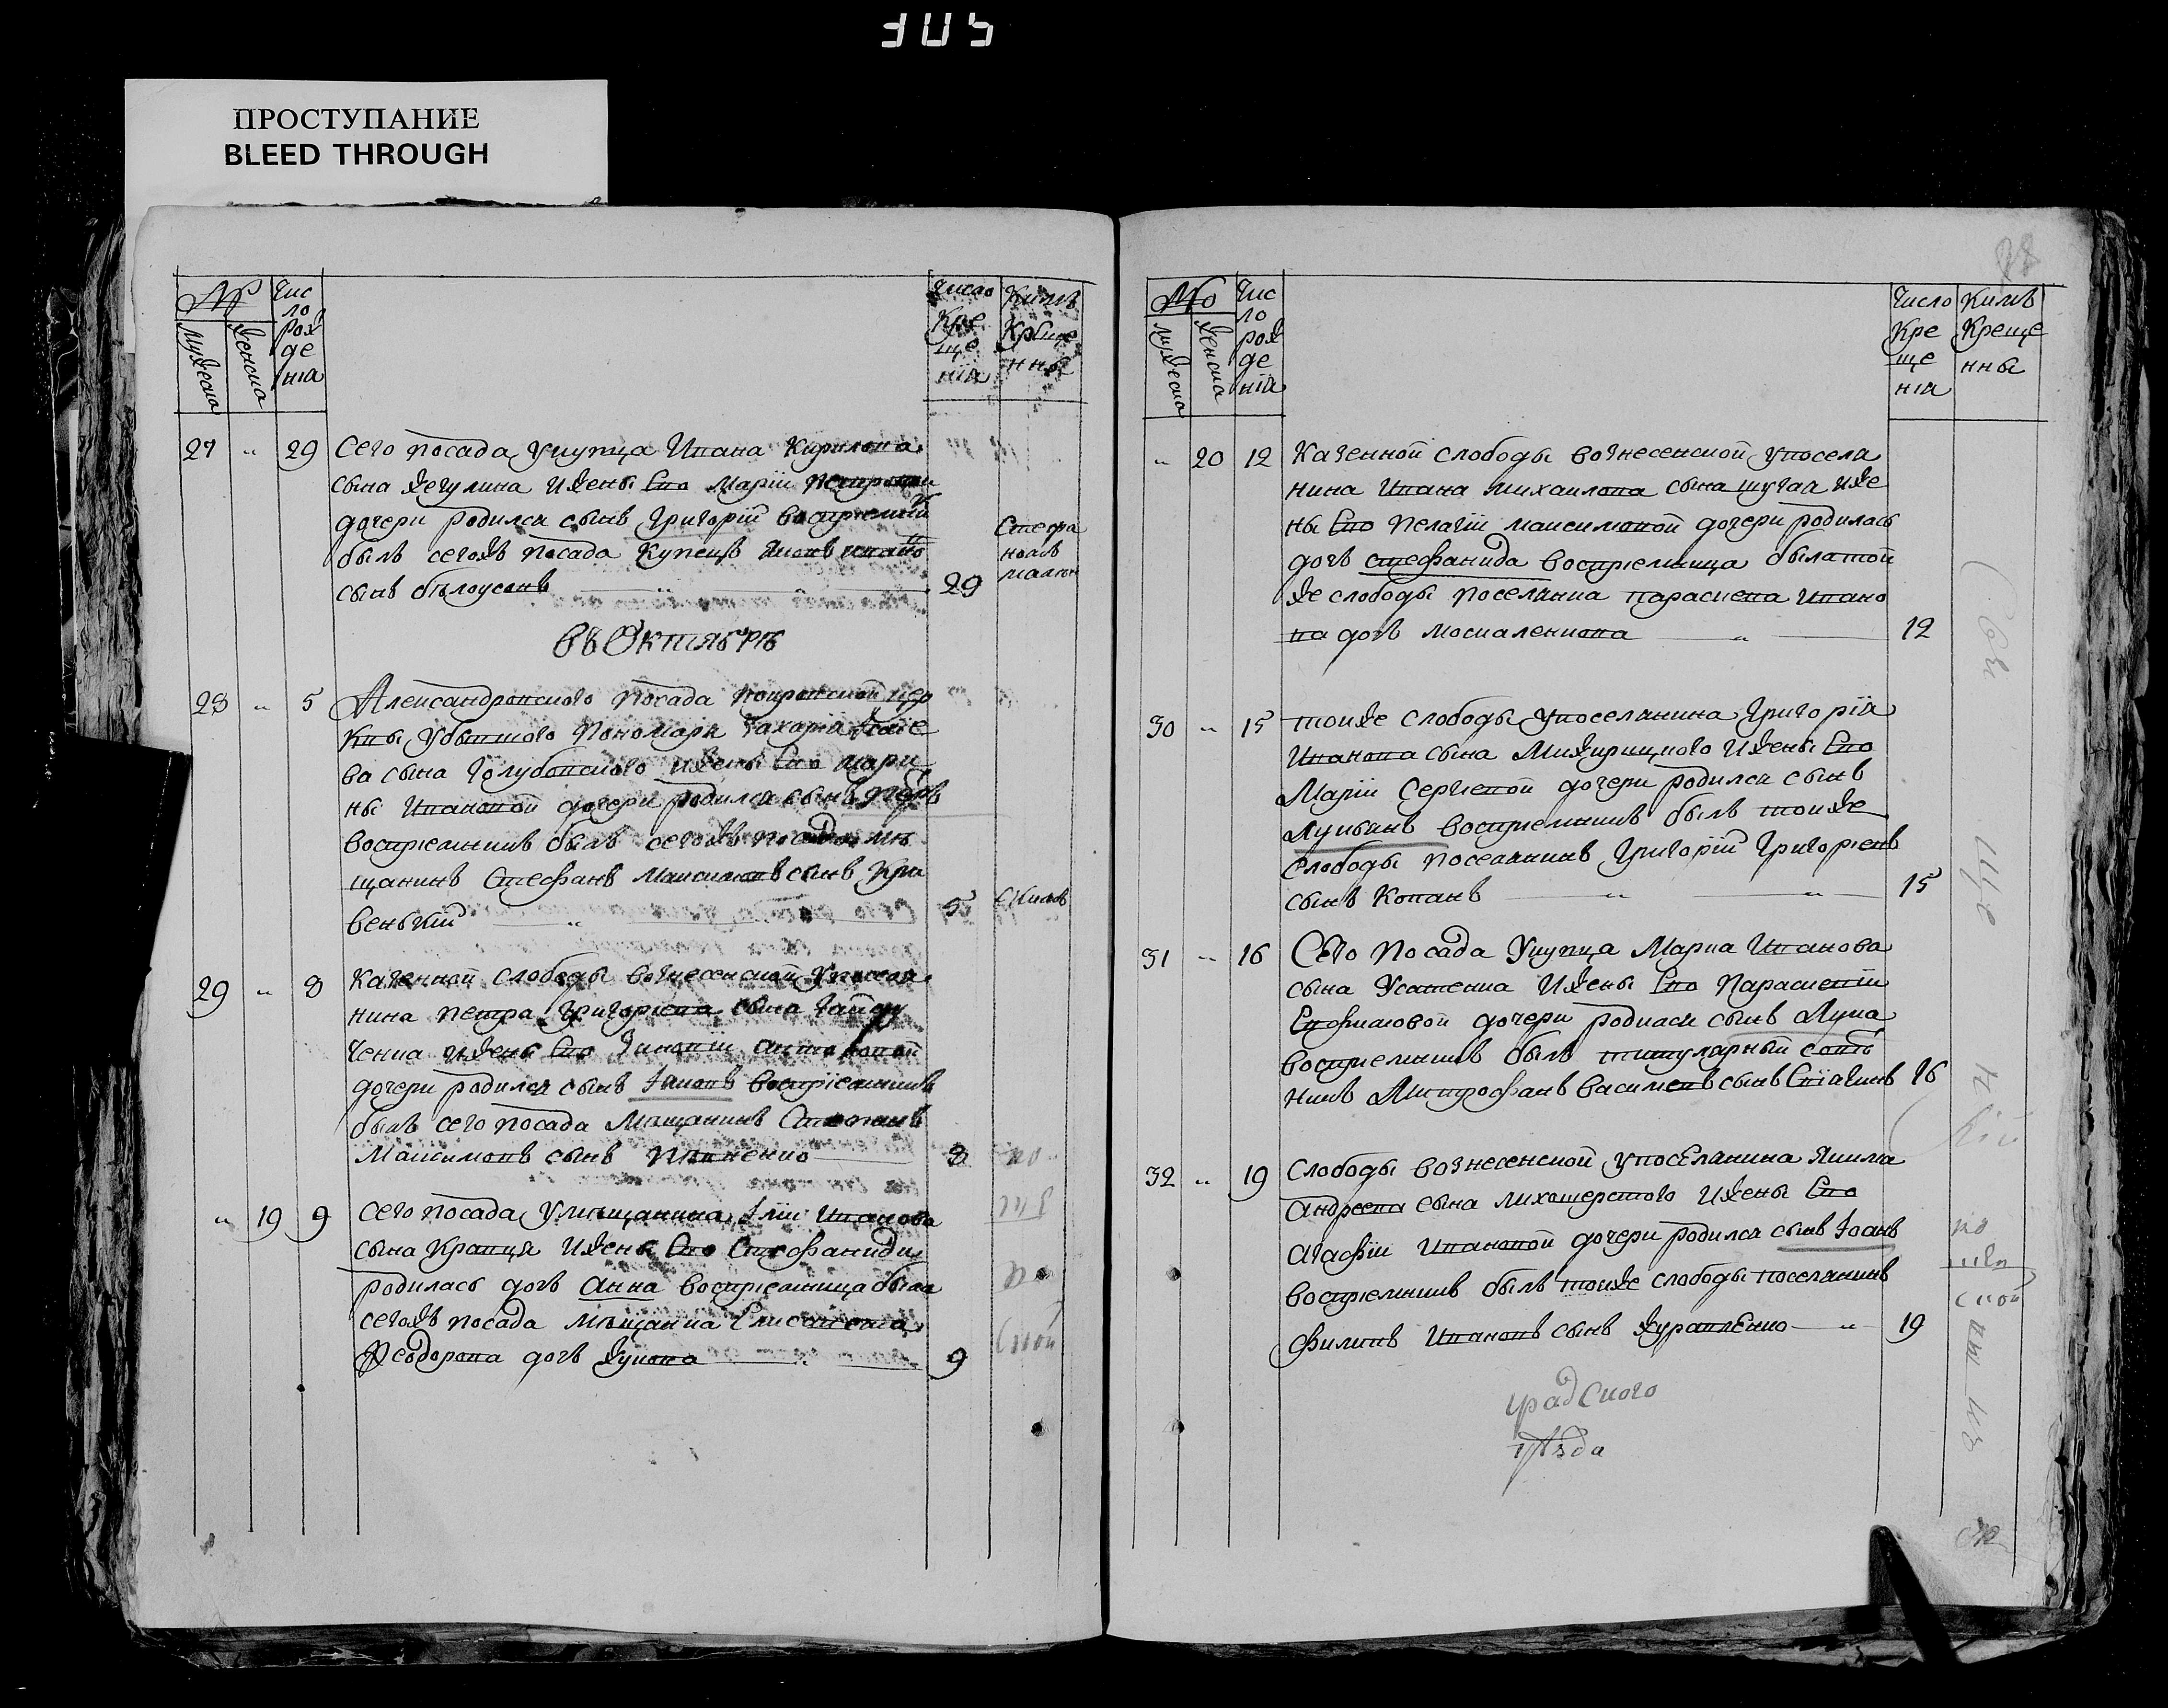 305
ПРОСТУПАНИЕ
BLEED THROUGH
№
мужеска
женска
Чис
ло
рож
де
нія
Число
Кре
ще
нія
Кимъ
Креще
нны
27 " 29 Сего посада у купца Ивана Кирилова
сына Жегулина и жены Его Маріи Петровой
дочери родился сынъ Григорій воспріемникъ
былъ сегожъ посада Купецъ
сынъ бѣлоусовъ 29
Стефа
номъ
въ Октябрѣ
28 " 5 Александровского посада покровской цер
квы у бывшого Пономаря Захарія
ва сына Голубовского и жены Его мари
ны Ивановой дочери родился сынъ
воспріемникъ былъ сегожъ посада мѣ
щанинъ Стефанъ Максимовъ сынъ Кри
венькій 5
29 " 8 Казенной слободы вознесенской у посели
нина петра Григориева сына Гайду
ченка и жены Его Зиновіи
дочери родился сынъ Іаковъ воспріемникъ
былъ сего посада Мѣщанинъ
Максимовъ сынъ 8
" 19 9 Сего посада у мѣщанина Іліи Иванова
сына Кравця и жены Его Стефаниды
родилась дочь Анна воспріемница была
сегожъ посада мѣщанка
Феодорова дочь Жукова 9
по
по
ской
№
мужеска
женска
Чис
ло
рож
де
нія
Число
Кре
ще
нія
Кимъ
Креще
нны
" 20 12 Казенной слободы вознесенской у посела
нина Ивана Михаилова сына шугая и же
ны Его Пелагіи Максимовой дочери родилась
дочь стефанида воспріемница была той
же слободы Поселянка параскева Ивано
ва дочь Москаленкова 12
30 " 15 тойже слободы у поселянина Григорія
Иванова сына Мижирицкого и жены Его
Маріи Сергиевой дочери родился сынъ
Лукьянъ воспріемникъ былъ тойже
слободы поселянинъ Григорій Григориевъ
сынъ Копанъ 15
31 " 16 Сего посада у купца Марка Иванова
сына Усатенка и жены Его Параскевіи
Евфимовой дочери родился сынъ Лука
воспріемникъ былъ титулярный совѣт
никъ Митрофанъ Василиевъ сынъ 16
32 " 19 Слободы вознесенской у поселянина Якима
Андреева сына лихошерстого и жены Его
Агафіи Ивановой дочери родился сынъ Іоанъ
воспріемникъ былъ тойже слободы поселянинъ
Филипъ Ивановъ сынъ Журавленко 19
по
ской
градского
уѣзда